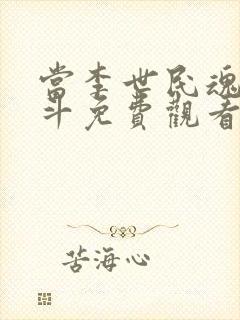 當李世民魂
斗免費觀看
苦海心